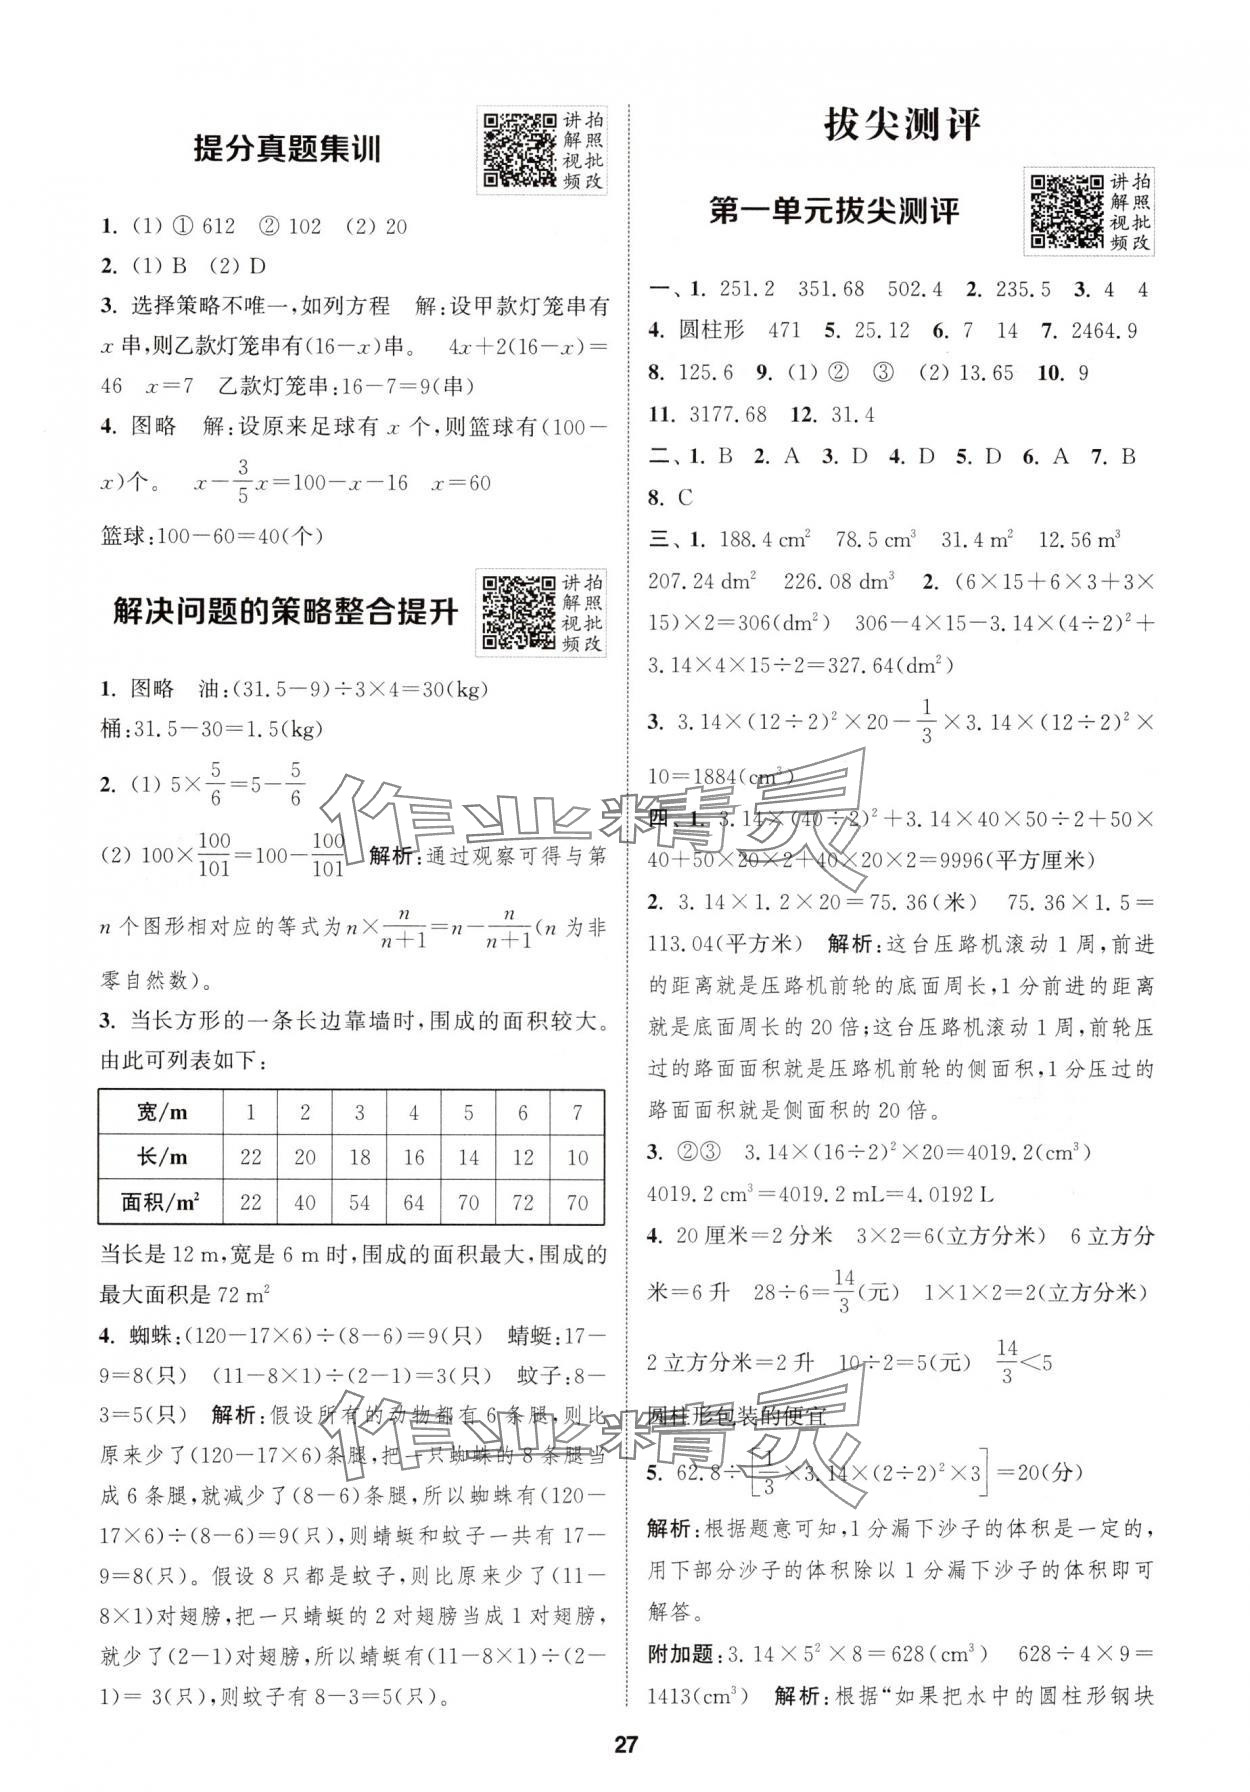 提分真题集训
讲拍
解照
视批
频改
1. (1) ① 612 ② 102 (2) 20
2. (1) B (2) D
3. 选择策略不唯一,如列方程 解:设甲款灯笼串有
x 串,则乙款灯笼串有(16-x)串。 4x+2(16-x)=
46 x=7 乙款灯笼串:16-7=9(串)
4. 图略 解:设原来足球有 x 个,则篮球有(100-
x)个。 x-3/5x=100-x-16 x=60
篮球:100-60=40(个)
解决问题的策略整合提升
讲拍
解照
视批
频改
1. 图略 油:(31.5-9)÷3×4=30(kg)
桶:31.5-30=1.5(kg)
2. (1) 5×5/6=5-5/6
(2) 100×100/101=100-100/101 解析:通过观察可得与第
n 个图形相对应的等式为n×n/(n+1)=n-n/(n+1)(n 为非
零自然数)。
3. 当长方形的一条长边靠墙时,围成的面积较大。
由此可列表如下:
宽/m 1 2 3 4 5 6 7
长/m 22 20 18 16 14 12 10
面积/m² 22 40 54 64 70 72 70
当长是 12 m,宽是 6 m 时,围成的面积最大,围成的
最大面积是 72 m²
4. 蜘蛛:(120-17×6)÷(8-6)=9(只) 蜻蜓:17-
9=8(只) (11-8×1)÷(2-1)=3(只) 蚊子:8-
3=5(只) 解析:假设所有的动物都有 6 条腿,则比
原来少了(120-17×6)条腿,把一只蜘蛛的 8 条腿当
成 6 条腿,就减少了(8-6)条腿,所以蜘蛛有(120-
17×6)÷(8-6)=9(只),则蜻蜓和蚊子一共有 17-
9=8(只)。假设 8 只都是蚊子,则比原来少了(11-
8×1)对翅膀,把一只蜻蜓的 2 对翅膀当成 1 对翅膀,
就少了(2-1)对翅膀,所以蜻蜓有(11-8×1)÷(2-
1)= 3(只),则蚊子有 8-3=5(只)。
拔尖测评
第一单元拔尖测评
讲拍
解照
视批
频改
一、1. 251.2 351.68 502.4 2. 235.5 3. 4 4
4. 圆柱形 471 5. 25.12 6. 7 14 7. 2464.9
8. 125.6 9. (1) ② ③ (2) 13.65 10. 9
11. 3177.68 12. 31.4
二、1. B 2. A 3. D 4. D 5. D 6. A 7. B
8. C
三、1. 188.4 cm² 78.5 cm³ 31.4 m² 12.56 m³
207.24 dm² 226.08 dm³ 2. (6×15+6×3+3×
15)×2=306(dm²) 306-4×15-3.14×(4÷2)²+
3.14×4×15÷2=327.64(dm²)
3. 3.14×(12÷2)²×20-1/3×3.14×(12÷2)²×
10=1884(cm³)
四、1. 3.14×(40÷2)²+3.14×40×50÷2+50×
40+50×20×2+40×20×2=9996(平方厘米)
2. 3.14×1.2×20=75.36(米) 75.36×1.5=
113.04(平方米) 解析:这台压路机滚动 1 周,前进
的距离就是压路机前轮的底面周长,1 分前进的距离
就是底面周长的 20 倍;这台压路机滚动 1 周,前轮压
过的路面面积就是压路机前轮的侧面积,1 分压过的
路面面积就是侧面积的 20 倍。
3. ②③ 3.14×(16÷2)²×20=4019.2(cm³)
4019.2 cm³=4019.2 mL=4.0192 L
4. 20 厘米=2 分米 3×2=6(立方分米) 6 立方分
米=6 升 28÷6=14/3(元) 1×1×2=2(立方分米)
2 立方分米=2 升 10÷2=5(元) 14/3<5
圆柱形包装的便宜
5. 62.8÷[1/3×3.14×(2÷2)²×3]=20(分)
解析:根据题意可知,1 分漏下沙子的体积是一定的,
用下部分沙子的体积除以 1 分漏下沙子的体积即可
解答。
附加题:3.14×5²×8=628(cm³) 628÷4×9=
1413(cm³) 解析:根据“如果把水中的圆柱形钢块
作业精灵
作业精灵
27